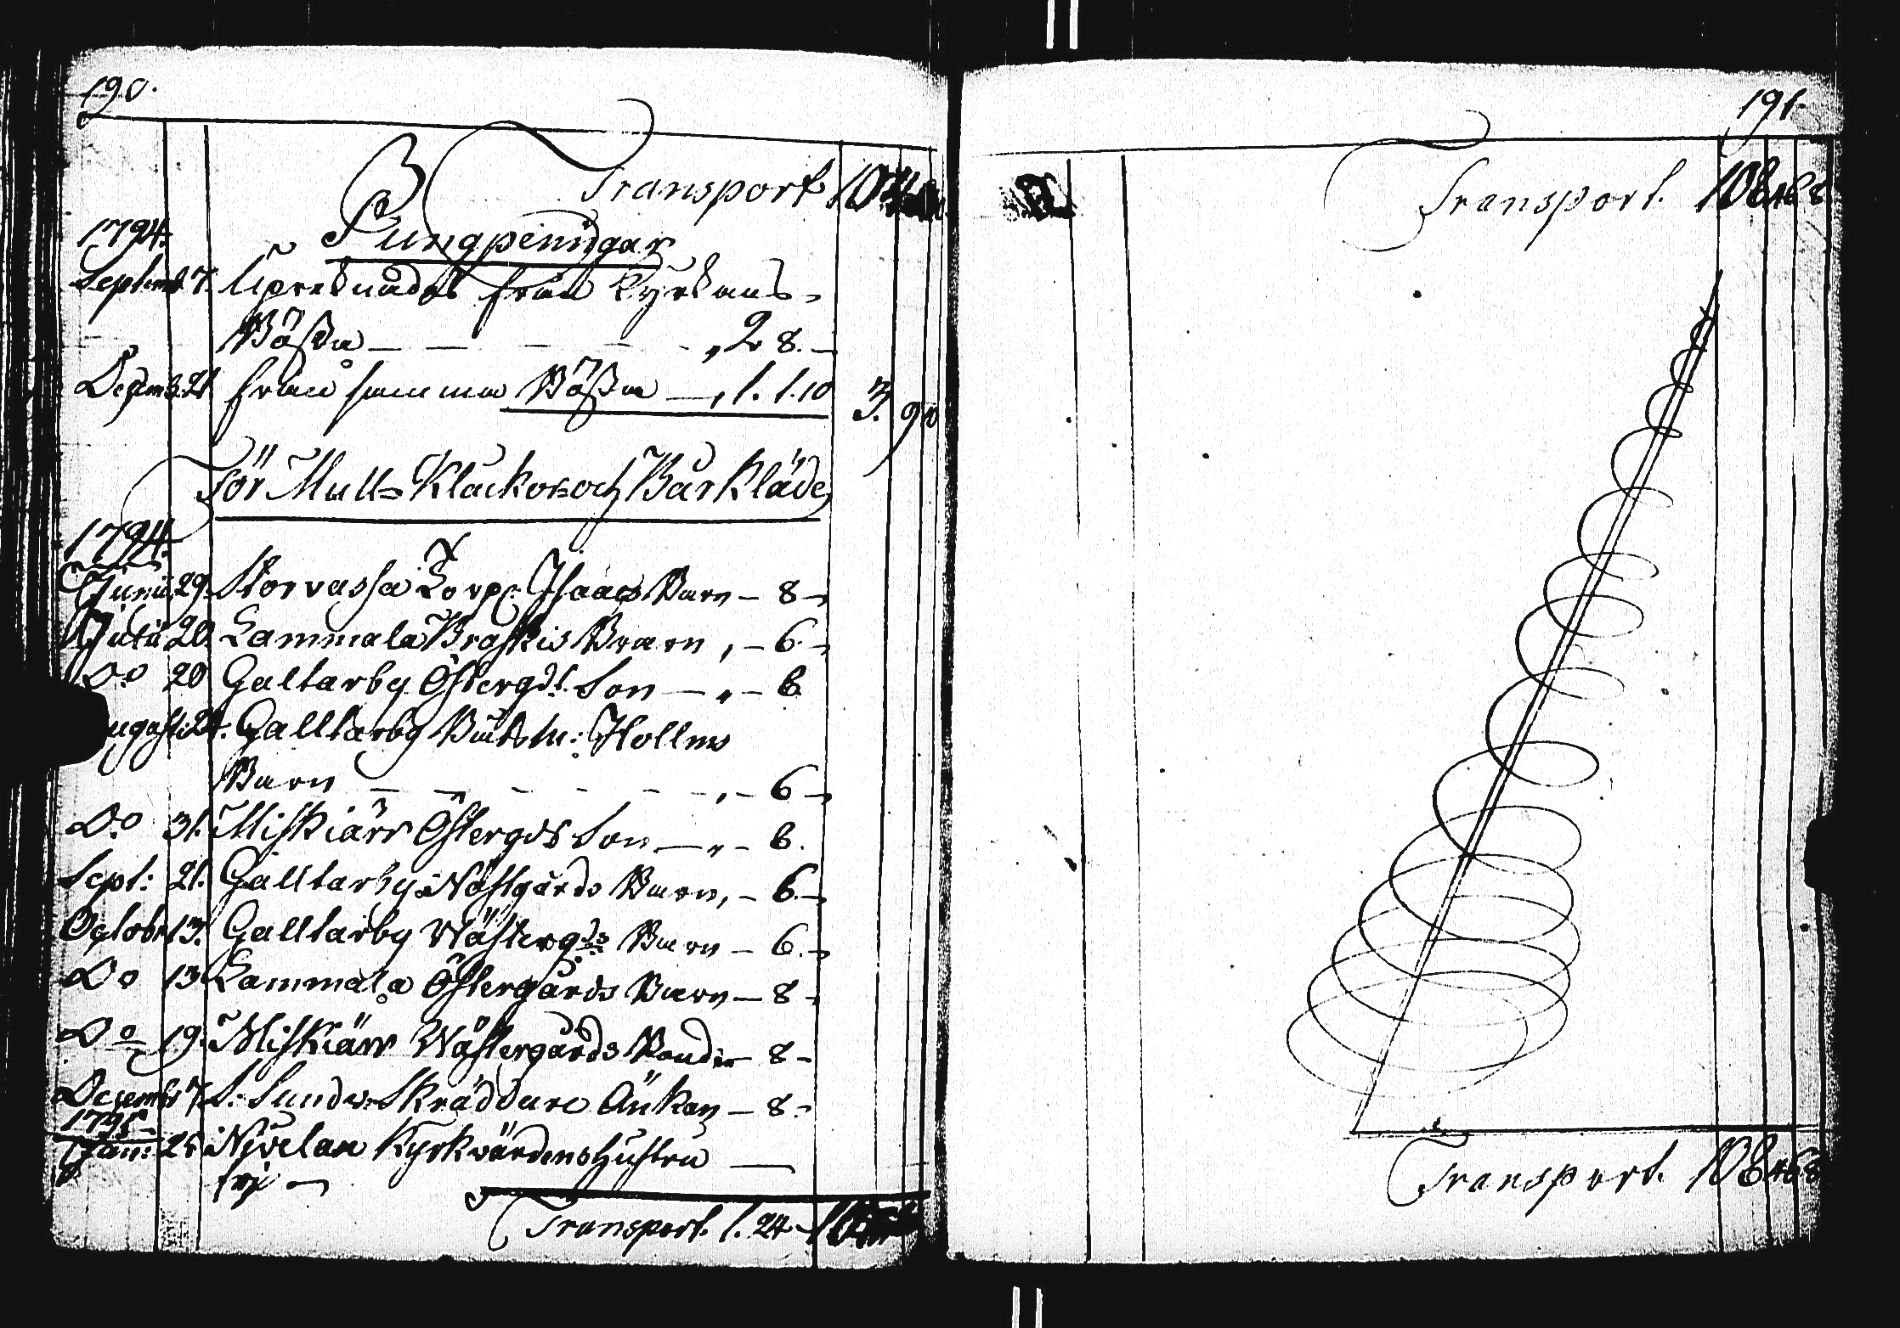 190.
Transport
1794.
Pungpeningar
Septemb 7. Upräknades från Kyrkans
Bössa — — — „ 2. 8. —
Decemb: 21 från samma Bössa —, 1. 1. 10 3. 9. 10
För Mull- Klockor och Bårkläde
1794.
Junii 29. Storvassa Torp: Isaacs Barn — 8 —
Julii 20. Lammala Braskis Barn, — 6 —
Do 20 Galtarby Östergds Son — „ — 6.
Augusti 24. Galltarby Båtsm: Hollms
Barn — — — — — , — 6 —
Do 31. Miskiärr Östergds Son — „ — 6.
Sept: 21. Galltarby Nästgårds Barn, — 6. —
Octobr 13. Galltarby Wästergds Barn — 6. —
Do 13 Lammala Östergårds Barn — 8 —
Do 19. Miskiärr Wästergårds — 8 —
Decembr 7. S. Sundv: Skräddare Änkan — 8 —
1795
Jan: 25 Nivelax Kyrkvärdens Hustru —
fri —
Transport. 1. 24 —
191.
Transport. 108 46 8
Transport. 108 46 8